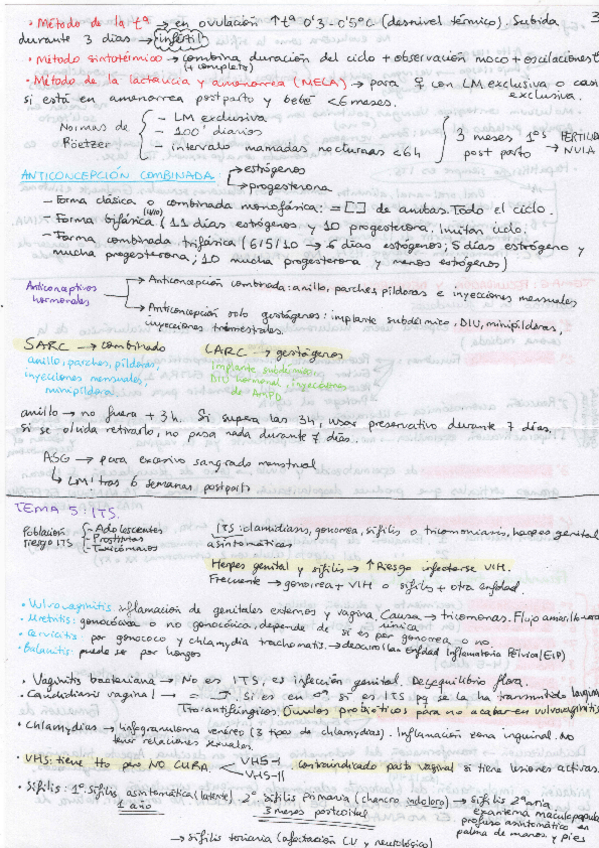 3
• Método de la tª → en ovulación ↑tª 0'3-0'5ºC (desnivel térmico). Subida
durante 3 días → infértil
• Método sintotérmico → combina duración del ciclo + observación moco + oscilaciones tª
(+ completo)
• Método de la lactancia y amenorrea (MELA) → para ♀ con LM exclusiva o casi
exclusiva.
si está en amenorrea postparto y bebé <6 meses.
Normas de Röetzer
- LM exclusiva
- 100' diarios
- intervalo mamadas nocturnas <6h
3 meses 1ºs post parto → FERTILIDAD NULA
ANTICONCEPCIÓN COMBINADA → estrógenos
→ progesterona
- Forma clásica o combinada monofásica: = [] de ambas. Todo el ciclo.
- Forma bifásica (11/10) (11 días estrógenos y 10 progesterona. Imitan ciclo.
- Forma combinada trifásica (6/5/10 → 6 días estrógenos; 5 días estrógeno y
mucha progesterona; 10 mucha progesterona y menos estrógenos)
Anticonceptivos hormonales
→ Anticoncepción combinada: anillo, parches, píldoras e inyecciones mensuales
→ Anticoncepción solo gestágenos: implante subdérmico, DIU, minipíldoras,
inyecciones trimestrales.
SARC → combinado LARC → gestágenos
anillo, parches, píldoras,
inyecciones mensuales,
minipíldora
Implante subdérmico,
DIU hormonal, inyecciones
de AMPD
anillo → no fuera + 3h. Si supera las 3h, usar preservativo durante 7 días,
si se olvida retirarlo, no pasa nada durante 7 días.
ASG → para excesivo sangrado menstrual
↳ LM tras 6 semanas postparto
TEMA 5: ITS.
Población riesgo ITS
- Adolescentes
- Prostitutas
- Toxicómanos
ITS: clamidiasis, gonorrea, sífilis o tricomoniasis, herpes genital
asintomáticas
Herpes genital y sífilis → ↑ Riesgo infectarse VIH.
Frecuente → gonorrea + VIH o sífilis + otra enfdad.
• Vulvovaginitis: inflamación de genitales externos y vagina. Causa → tricomonas. Flujo amarillo
• Uretritis: gonocócica o no gonocócica, depende de si es por gonorrea o no.
única
• Cervicitis: por gonococo y chlamydia trachomatis. → desarrollan enfdad Inflamatoria Pélvica (EIP)
• Balanitis: puede se por hongos
• Vaginitis bacteriana → No es ITS, es infección genital. Desequilibrio flora.
• Candidiasis vaginal → = . Si es en ♂ si es ITS pq se la ha transmitido la
Tto: antifúngicos. Óvulos probióticos para no acabar en vulvovaginitis
• Chlamydias → linfogranuloma venéreo (3 tipos de chlamydias). Inflamación zona inguinal. No
tener relaciones sexuales.
• VHS: tiene tto pero NO CURA. VHS-I
VHS-II
contraindicado parto vaginal si tiene lesiones activas.
• Sífilis: 1º Sífilis asintomática (latente) 2º sífilis primaria (chancro indoloro) → sífilis 2ªaria
1 año
3 meses postcoital
exantema maculopapular
profuso asintomático en
palma de manos y pies
→ sífilis terciaria (afectación CV y neurológica)